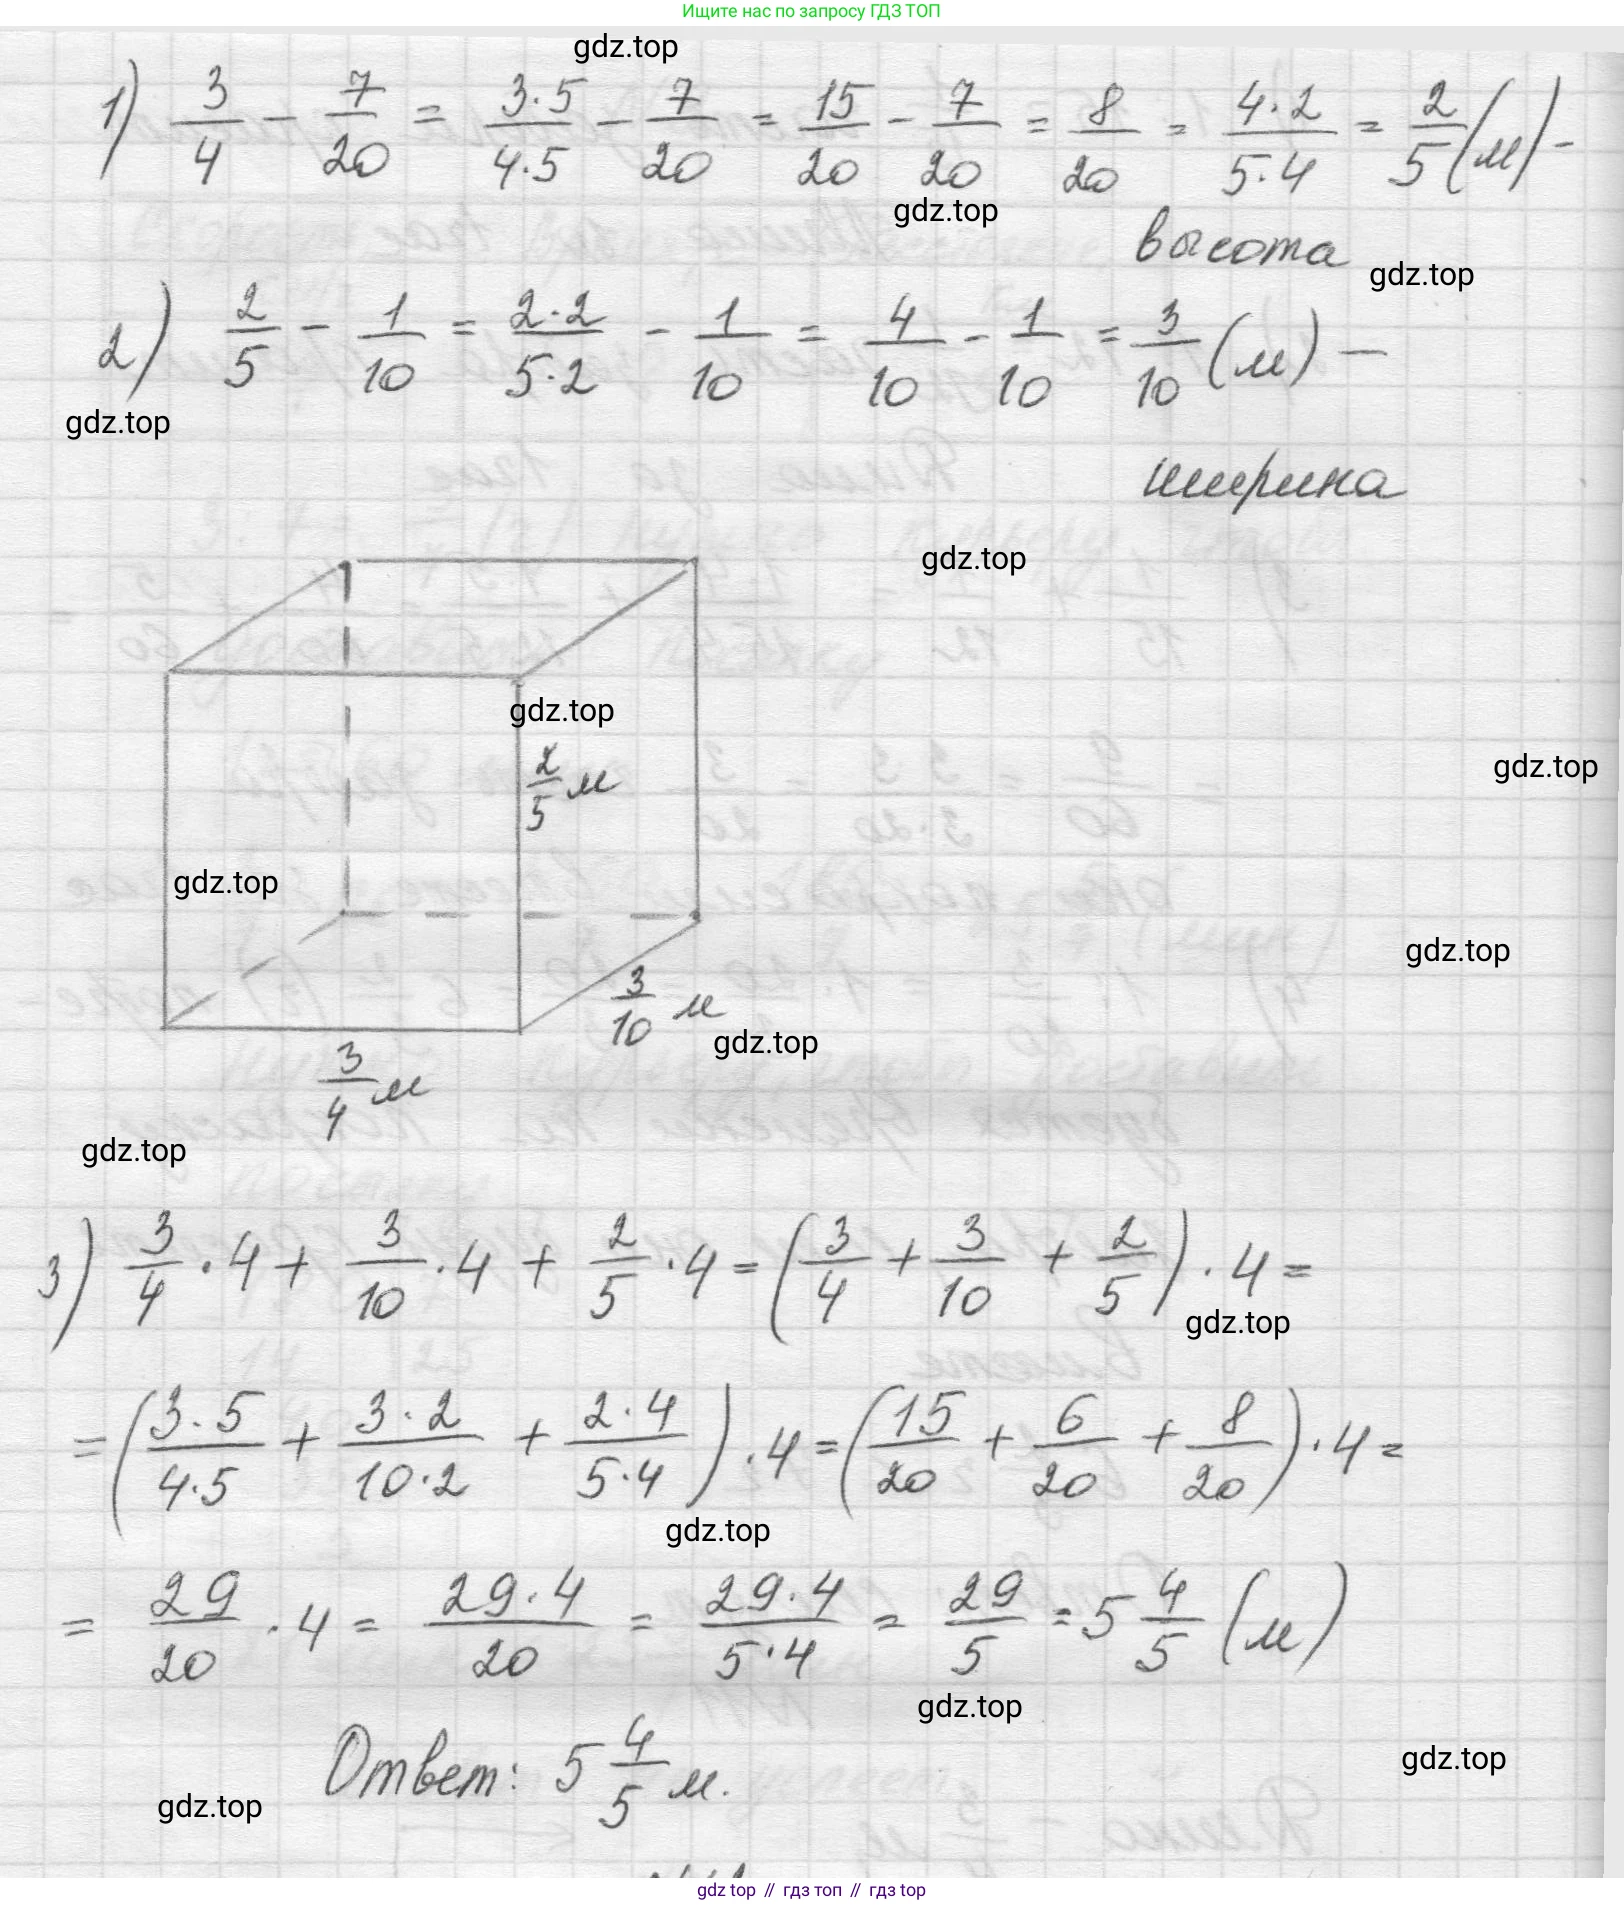 Ищите нас по запросу ГДЗ ТОП
gdz.top
1) 3/4 - 7/20 = 3·5/4·5 - 7/20 = 15/20 - 7/20 = 8/20 = 4·2/5·4 = 2/5 (м) -
gdz.top
высота
gdz.top
2) 2/5 - 1/10 = 2·2/5·2 - 1/10 = 4/10 - 1/10 = 3/10 (м) —
gdz.top
ширина
gdz.top
gdz.top
2/5 м
gdz.top
gdz.top
gdz.top
3/10 м
gdz.top
3/4 м
gdz.top
3) 3/4 · 4 + 3/10 · 4 + 2/5 · 4 = (3/4 + 3/10 + 2/5) · 4 =
gdz.top
= (3·5/4·5 + 3·2/10·2 + 2·4/5·4) · 4 = (15/20 + 6/20 + 8/20) · 4 =
gdz.top
= 29/20 · 4 = 29·4/20 = 29·4/5·4 = 29/5 = 5 4/5 (м)
gdz.top
Ответ: 5 4/5 м.
gdz.top
gdz.top
gdz top // гдз топ // гдз top